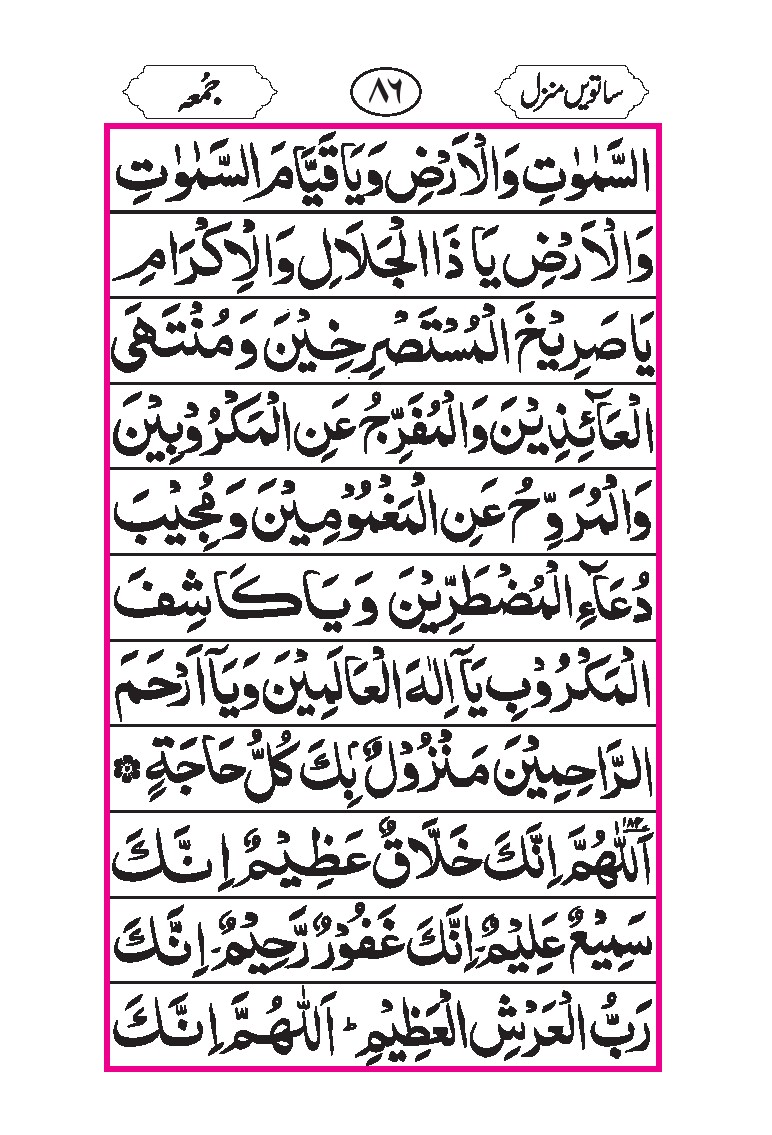 ساتویں منزل
۸۶
جُمعہ
السَّمٰوٰتِ وَالْاَرْضِ وَيَا قَيَّامَ السَّمٰوٰتِ
وَالْاَرْضِ يَا ذَا الْجَلَالِ وَالْاِكْرَامِ
يَا صَرِيْخَ الْمُسْتَصْرِخِيْنَ وَمُنْتَهَى
الْعَآئِذِيْنَ وَالْمُفَرِّجُ عَنِ الْمَكْرُوْبِيْنَ
وَالْمُرَوِّحُ عَنِ الْمَغْمُوْمِيْنَ وَمُجِيْبَ
دُعَآءِ الْمُضْطَرِّيْنَ وَيَا كَاشِفَ
الْمَكْرُوْبِ يَآ اِلٰهَ الْعَالَمِيْنَ وَيَآ اَرْحَمَ
الرَّاحِمِيْنَ مَنْزُوْلٌ بِكَ كُلُّ حَاجَةٍ
اَللّٰهُمَّ اِنَّكَ خَلَّاقٌ عَظِيْمٌ اِنَّكَ
سَمِيْعٌ عَلِيْمٌ۔ اِنَّكَ غَفُوْرٌ رَّحِيْمٌ۔ اِنَّكَ
رَبُّ الْعَرْشِ الْعَظِيْمِ ط اَللّٰهُمَّ اِنَّكَ